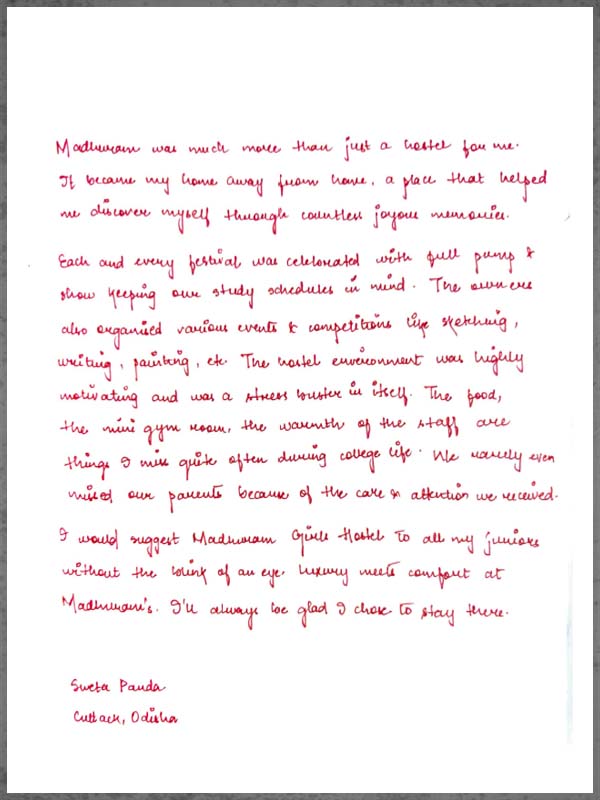 Madhuram was much more than just a hostel for me.
It became my home away from home, a place that helped
me discover myself through countless joyous memories.
Each and every festival was celebrated with full pump &
show keeping our study schedules in mind. The owners
also organised various events & competitions like sketching,
writing, painting, etc. The hostel environment was highly
motivating and was a stress buster in itself. The food,
the mini gym room, the warmth of the staff are
things I miss quite often during college life. We rarely even
missed our parents because of the care & attention we received.
I would suggest Madhuram Girls Hostel to all my juniors
without the blink of an eye. Luxury meets comfort at
Madhuram's. I'll always be glad I chose to stay there.
Sweta Panda
Cuttack, Odisha